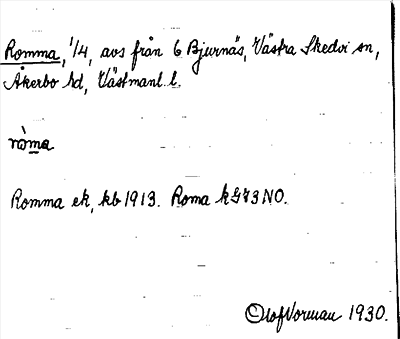 Romma, 1/4, avs från 6 Bjurnäs, Västra Skedvi sn,
Åkerbo hd, Västmanl. l.
ròma
Romma ek, kb 1913. Roma k G73NO.
Olof Vorman 1930.